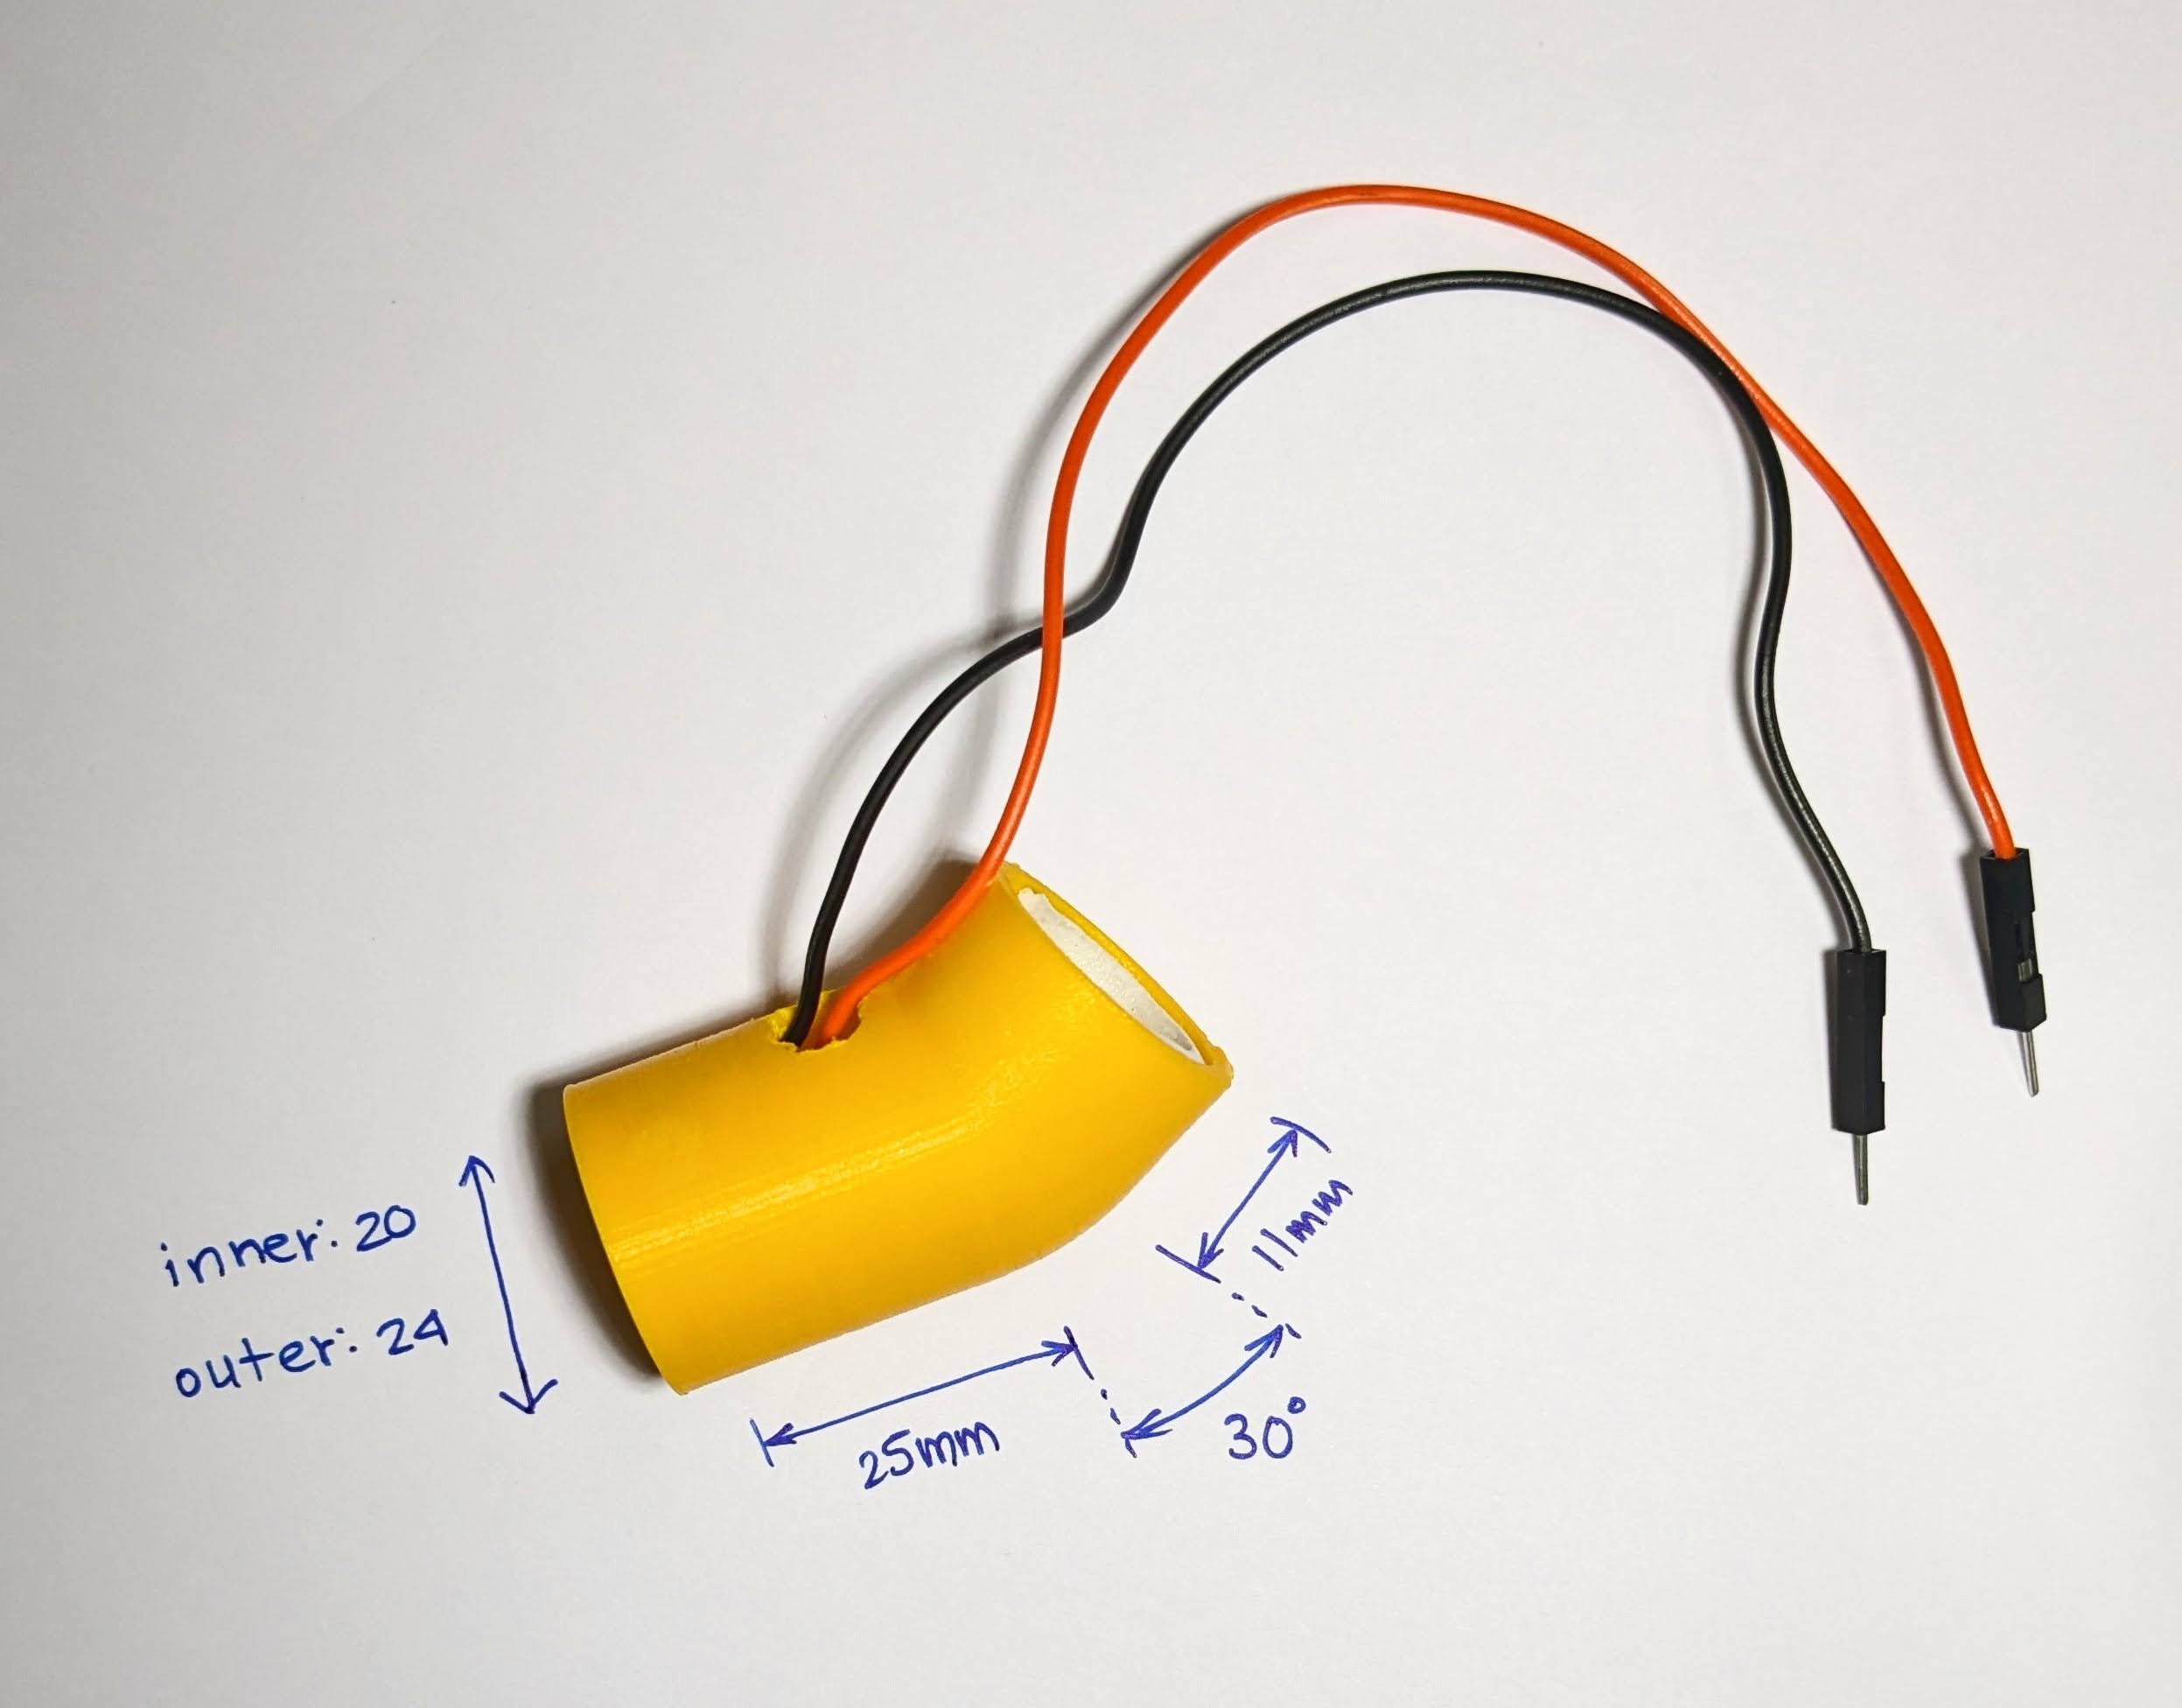 inner: 20
outer: 24
25mm
11mm
30°